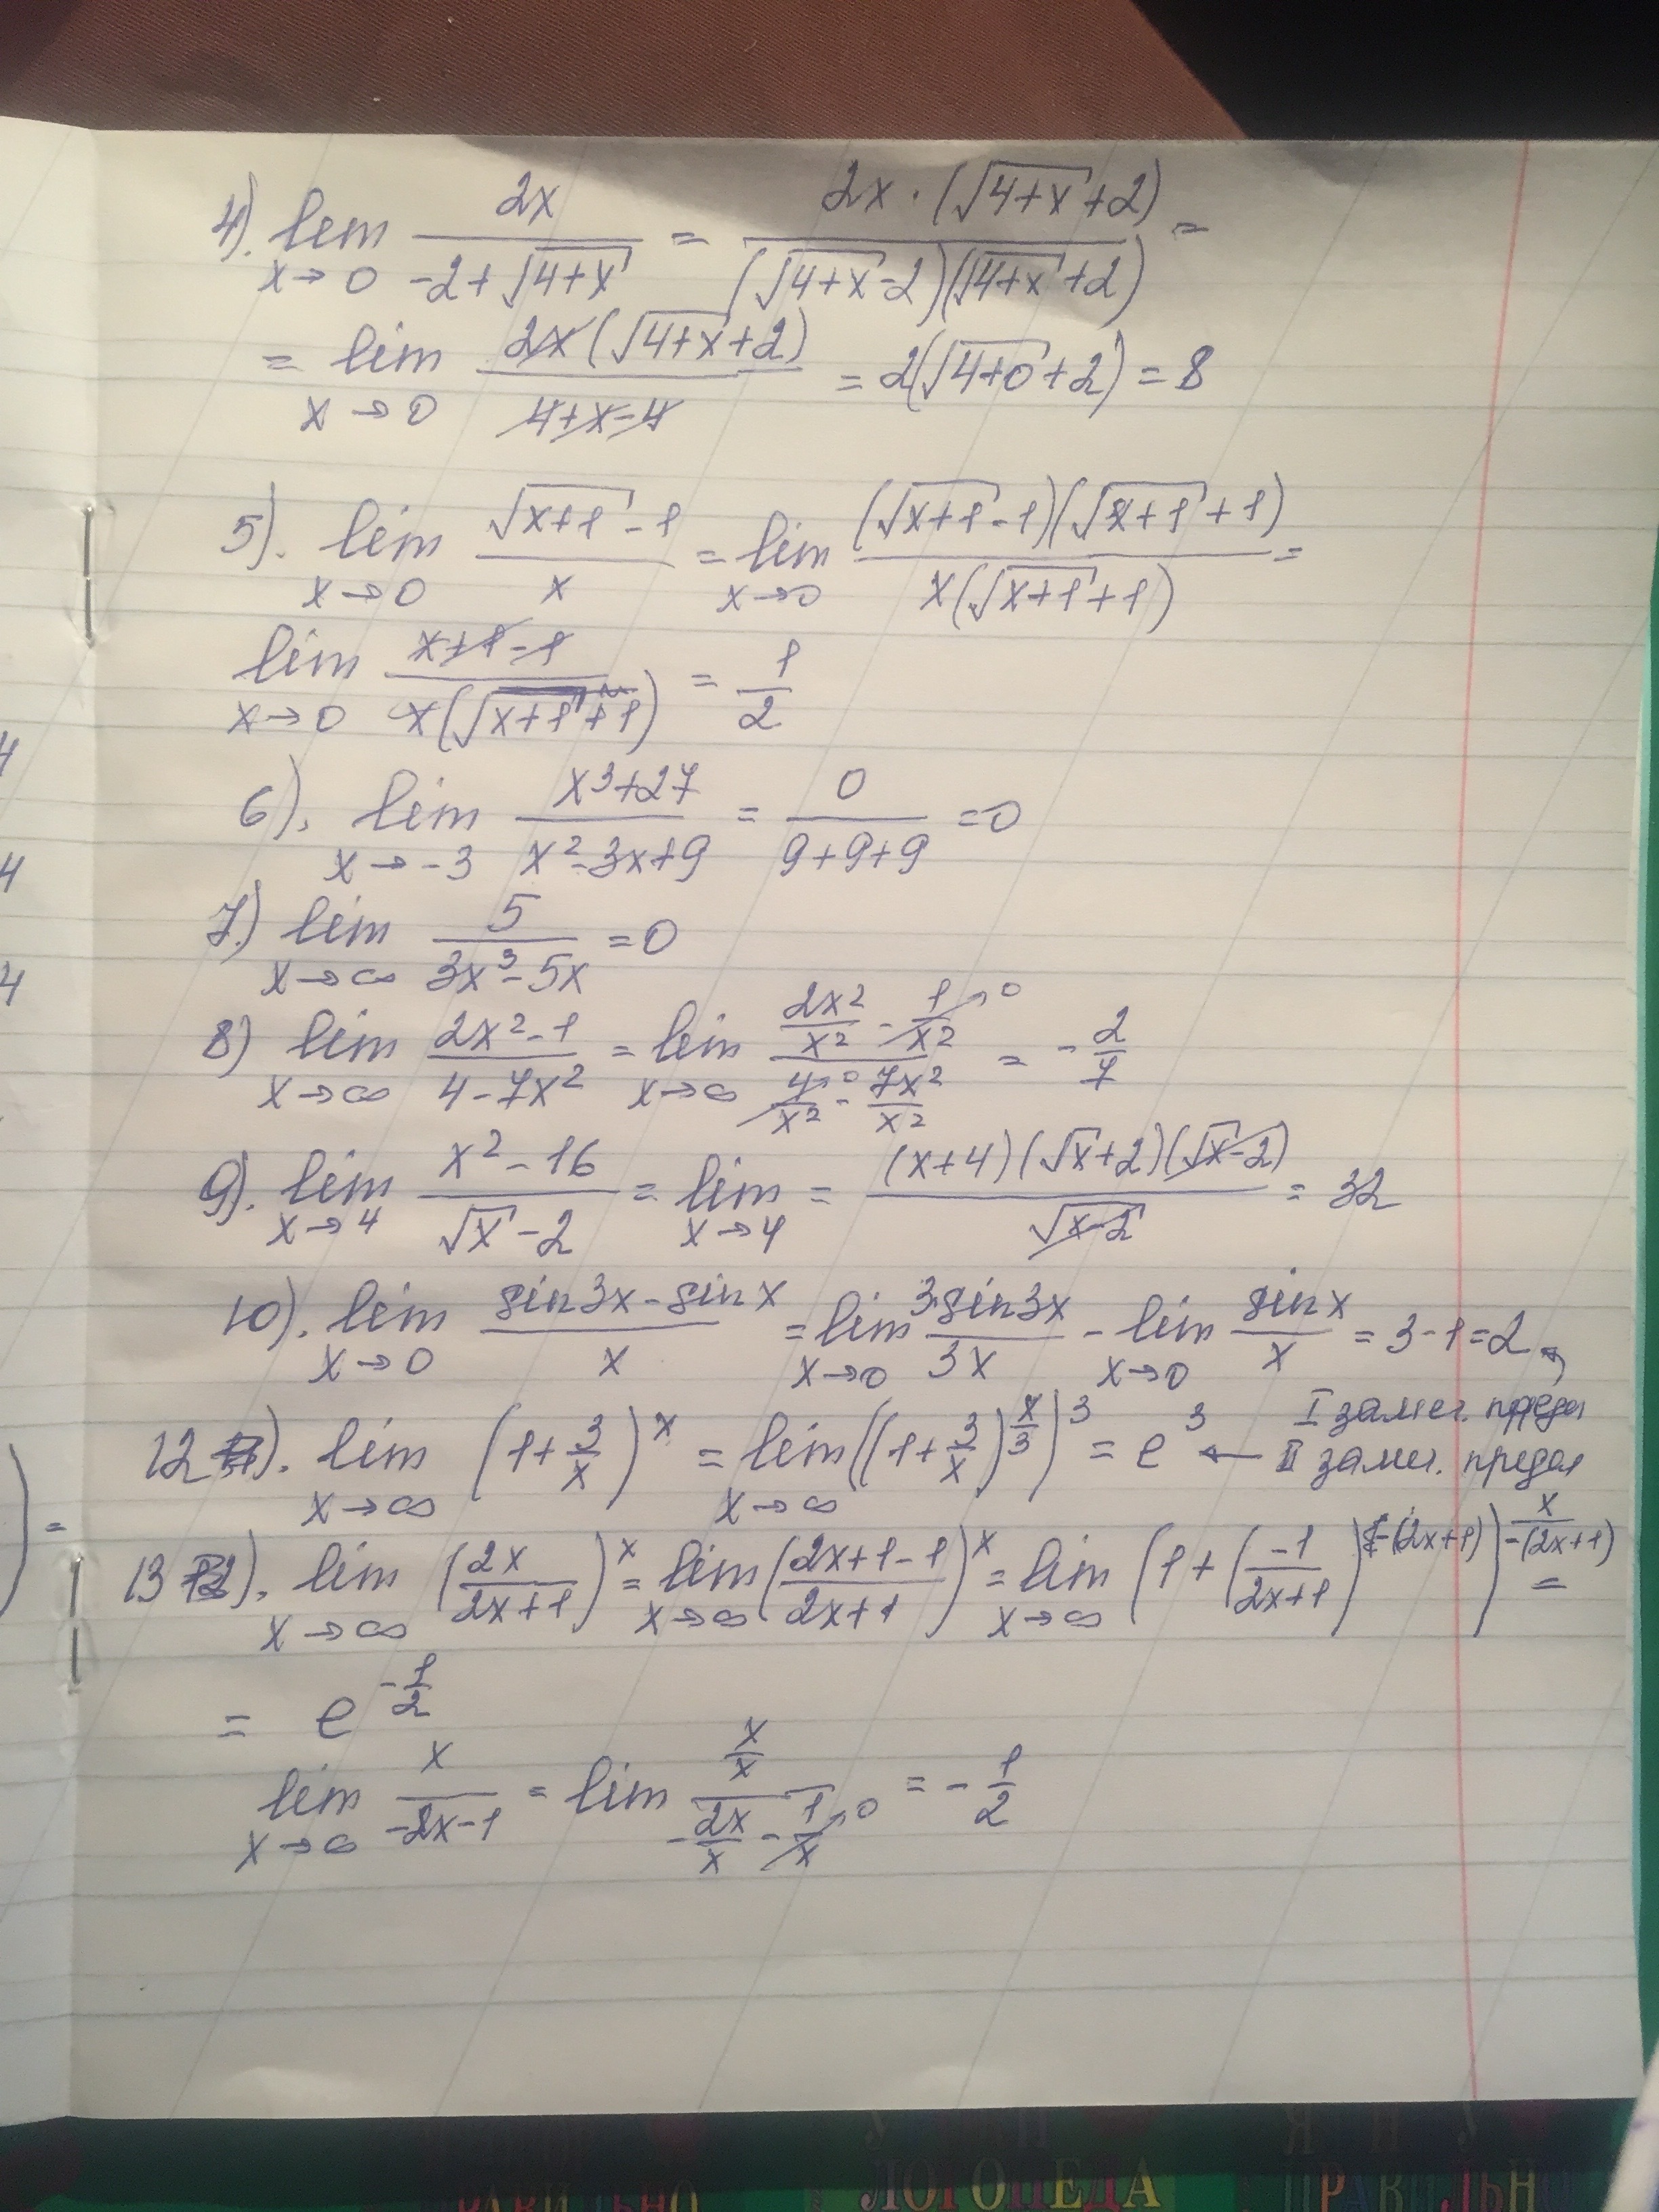 4). lim x→0 2x/(-2+√(4+x)) = 2x·(√(4+x)+2)/((√(4+x)-2)(√(4+x)+2)) =
= lim x→0 2x(√(4+x)+2)/(4+x-4) = 2(√(4+0)+2) = 8
5). lim x→0 (√(x+1)-1)/x = lim x→0 (√(x+1)-1)(√(x+1)+1)/(x(√(x+1)+1)) =
lim x→0 (x+1-1)/(x(√(x+1)+1)) = 1/2
6). lim x→-3 (x³+27)/(x²-3x+9) = 0/(9+9+9) = 0
7.) lim x→∞ 5/(3x³-5x) = 0
8) lim x→∞ (2x²-1)/(4-7x²) = lim x→∞ (2x²/x² - 1/x²→0)/(4/x²→0 - 7x²/x²) = -2/7
9). lim x→4 (x²-16)/(√x-2) = lim x→4 = (x+4)(√x+2)(√x-2)/(√x-2) = 32
10). lim x→0 (sin3x-sinx)/x = lim x→0 3·sin3x/3x - lim x→0 sinx/x = 3-1=2 ←
I замеч. предел
12). lim x→∞ (1+3/x)^x = lim x→∞ ((1+3/x)^(x/3))^3 = e^3 ← II замеч. предел
13). lim x→∞ (2x/(2x+1))^x = lim x→∞ ((2x+1-1)/(2x+1))^x = lim x→∞ (1+(-1/(2x+1))^(-(2x+1)))^(x/-(2x+1)) =
= e^(-1/2)
lim x→∞ x/(-2x-1) = lim (x/x)/(-2x/x - 1/x→0) = -1/2
4
4
4
) =
ЛОГОПЕДА
ПРАВИЛЬНО
ПРАВИЛЬНО